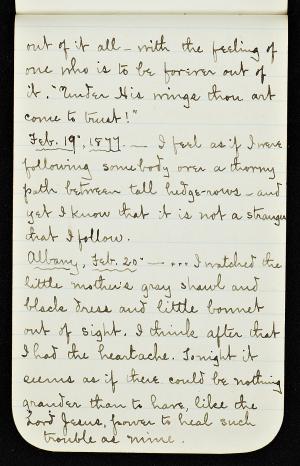 out of it all – with the feeling of
one who is to be forever out of
it. "Under His wings thou art
come to trust!"
Feb. 19", 1877. — I feel as if I were
following somebody over a thorny
path between tall hedge-rows – and
yet I know that it is not a stranger
that I follow.
Albany, Feb. 20" — ... I watched the
little mother's gray shawl and
black dress and little bonnet
out of sight. I think after that
I had the heartache. Tonight it
seems as if there could be nothing
grander than to have, like the
Lord Jesus, power to heal such
trouble as mine.